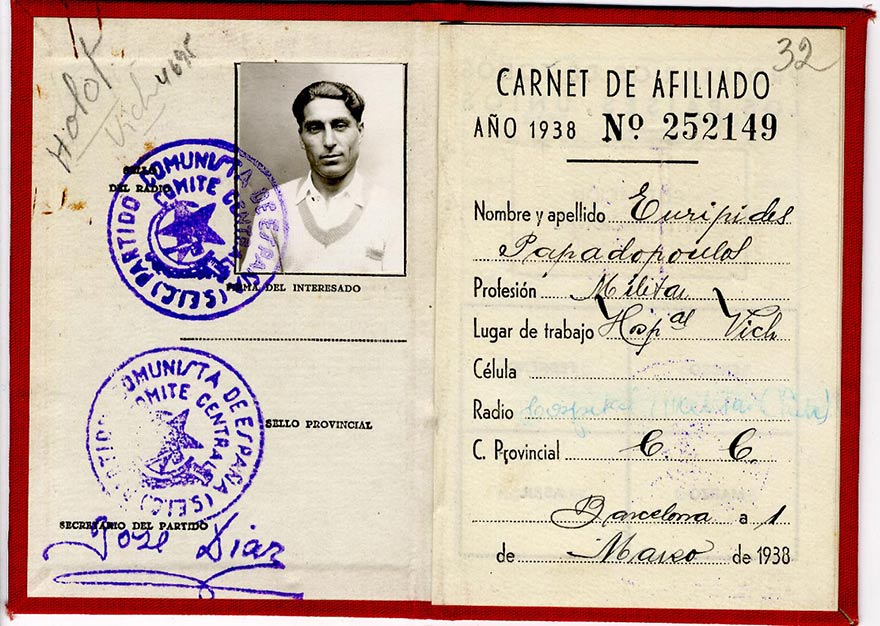 Holot
Vich 4695
SELLO
DEL RADIO
PARTIDO COMUNISTA DE ESPAÑA (S.E.I.C.)
COMITE CENTRAL
FIRMA DEL INTERESADO
PARTIDO COMUNISTA DE ESPAÑA (S.E.I.C.)
COMITE CENTRAL
SELLO PROVINCIAL
SECRETARIO DEL PARTIDO
José Diaz
32
CARNET DE AFILIADO
AÑO 1938 Nº 252149
Nombre y apellido Euripides
Papadopoulos
Profesión Militar
Lugar de trabajo Hospal Vich
Célula
Radio Hospital Militar
C. Provincial C. C.
Barcelona a 1
de Marzo de 1938